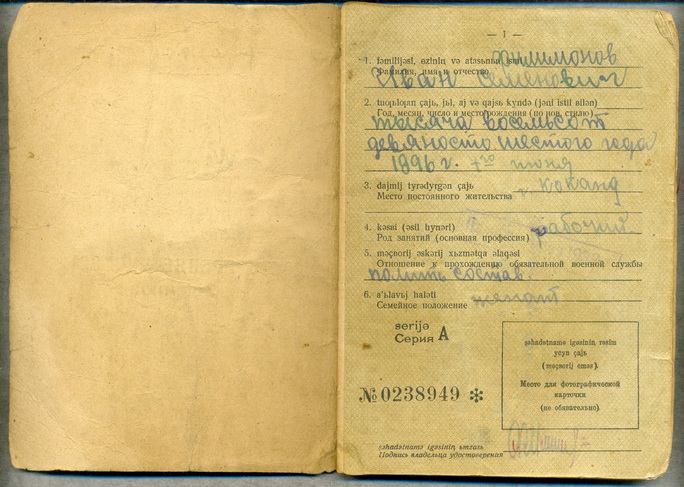 — 1 —
1. fəmilijəsi, əzinin və atasьnьn ismi Филимонов
Фамилия, имя и отчество
Иван Семенович
2. tuqьlqan çajь, jьl, aj və qajsь kyndə (jəni istil bilən)
Год, месяц, число и место рождения (по нов. стилю)
тысяча восемьсот
девяносто шестого года
1896 г. июня
3. dajmij tyrədyrgən çajь г. Коканд
Место постоянного жительства
4. kəsni (əsil hynəri) рабочий
Род занятий (основная профессия)
5. məçborij əskərij xьzmətqa əlaqəsi
Отношение к прохождению обязательной военной службы
полит состав.
6. a'ьlavьj haləti женат
Семейное положение
serijə
Серия А
№ 0238949 *
şəhadətnamə igəsinin rəsim
ycyn çajь
(məçborij eməs).
Место для фотографической
карточки
(не обязательно).
şəhadətnamə igəsinin
Подпись владельца удостоверения